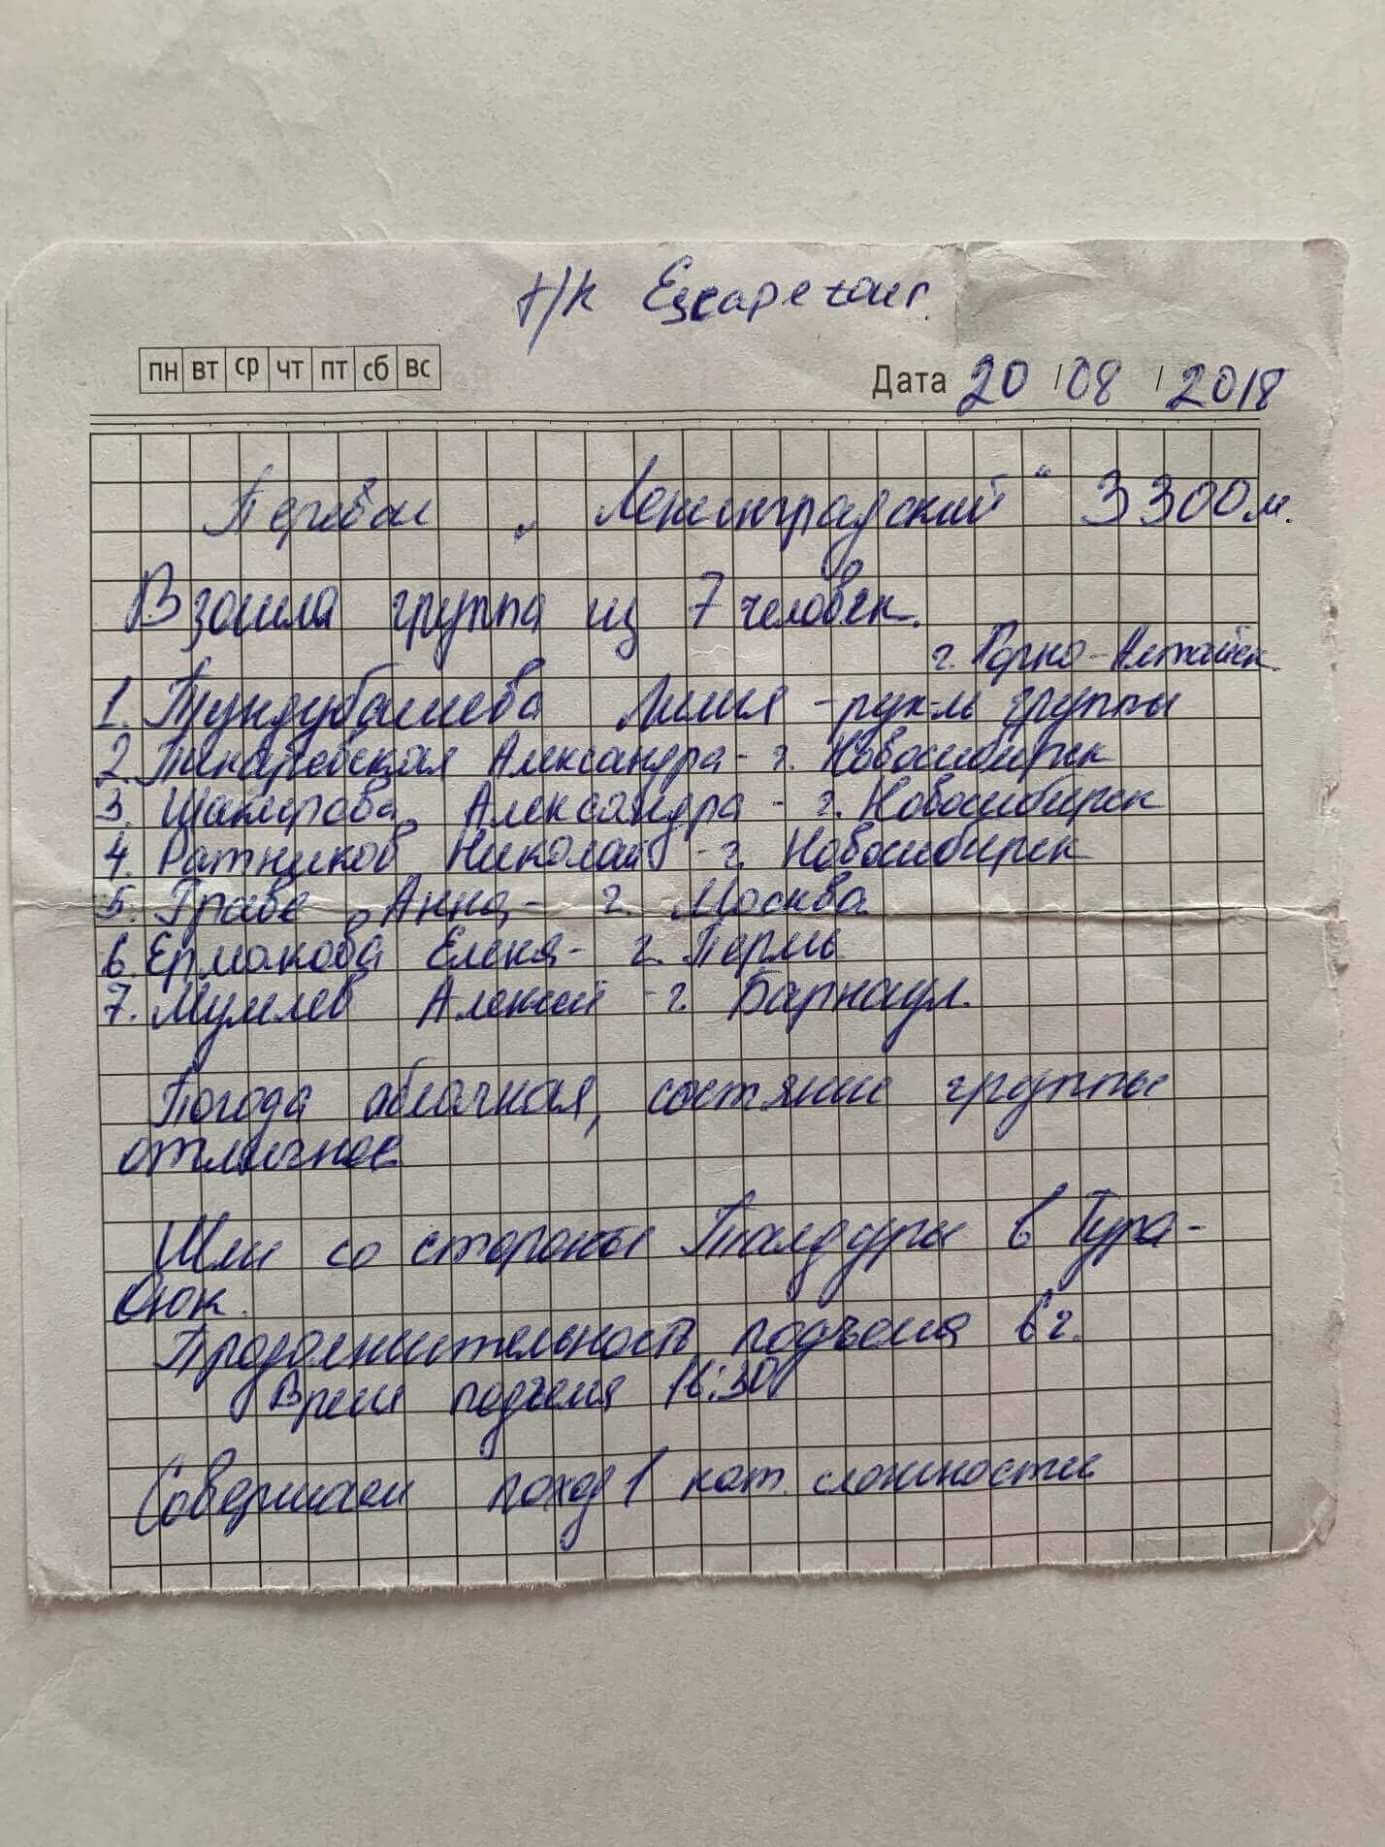 т/к Escape tour.
пн вт ср чт пт сб вс
Дата 20 / 08 / 2018
Перевал „Ленинградский“ 3300м.
Взошла группа из 7 человек.
г. Горно-Алтайск
1. Тундубашева Лилия - рук-ль группы
2. Александра - г. Новосибирск
3. Шакирова Александра - г. Новосибирск
4. Ратников Николай - г. Новосибирск
5. Грабе Анна - г. Москва
6. Ермакова Елена - г. Пермь
7. Алексей - г. Барнаул.
Погода облачная, состояние группы
отличное
Шли со стороны Талдуры в Тура-
Оюк.
Продолжительность подъема 6 ч.
Время подъема 16:30
Совершаем поход 1 кат. сложности